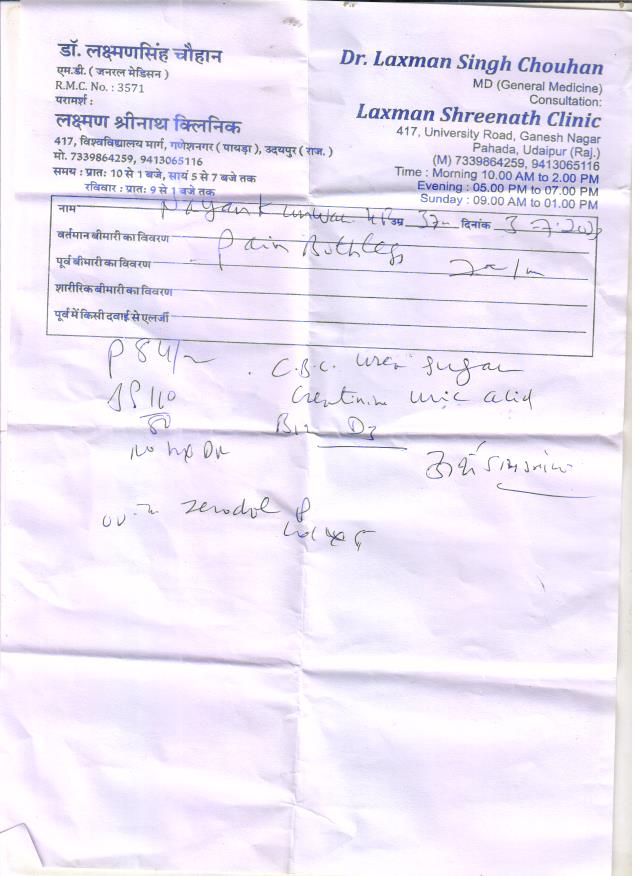 डॉ. लक्ष्मणसिंह चौहान
एम.डी. ( जनरल मेडिसन )
R.M.C. No. : 3571
परामर्श :
लक्ष्मण श्रीनाथ क्लिनिक
417, विश्वविद्यालय मार्ग, गणेशनगर ( पायड़ा ), उदयपुर ( राज. )
मो. 7339864259, 9413065116
समय : प्रातः 10 से 1 बजे, सायं 5 से 7 बजे तक
रविवार : प्रातः 9 से 1 बजे तक
Dr. Laxman Singh Chouhan
MD (General Medicine)
Consultation:
Laxman Shreenath Clinic
417, University Road, Ganesh Nagar
Pahada, Udaipur (Raj.)
(M) 7339864259, 9413065116
Time : Morning 10.00 AM to 2.00 PM
Evening : 05.00 PM to 07.00 PM
Sunday : 09.00 AM to 01.00 PM
नाम उम्र 37 दिनांक
वर्तमान बीमारी का विवरण Pain Both legs
पूर्व बीमारी का विवरण
शारीरिक बीमारी का विवरण
पूर्व में किसी दवाई से एलर्जी
P 84/m
C.B.C. urea Sugar
110
Creatinine uric acid
80
B12 D3
zerodol P